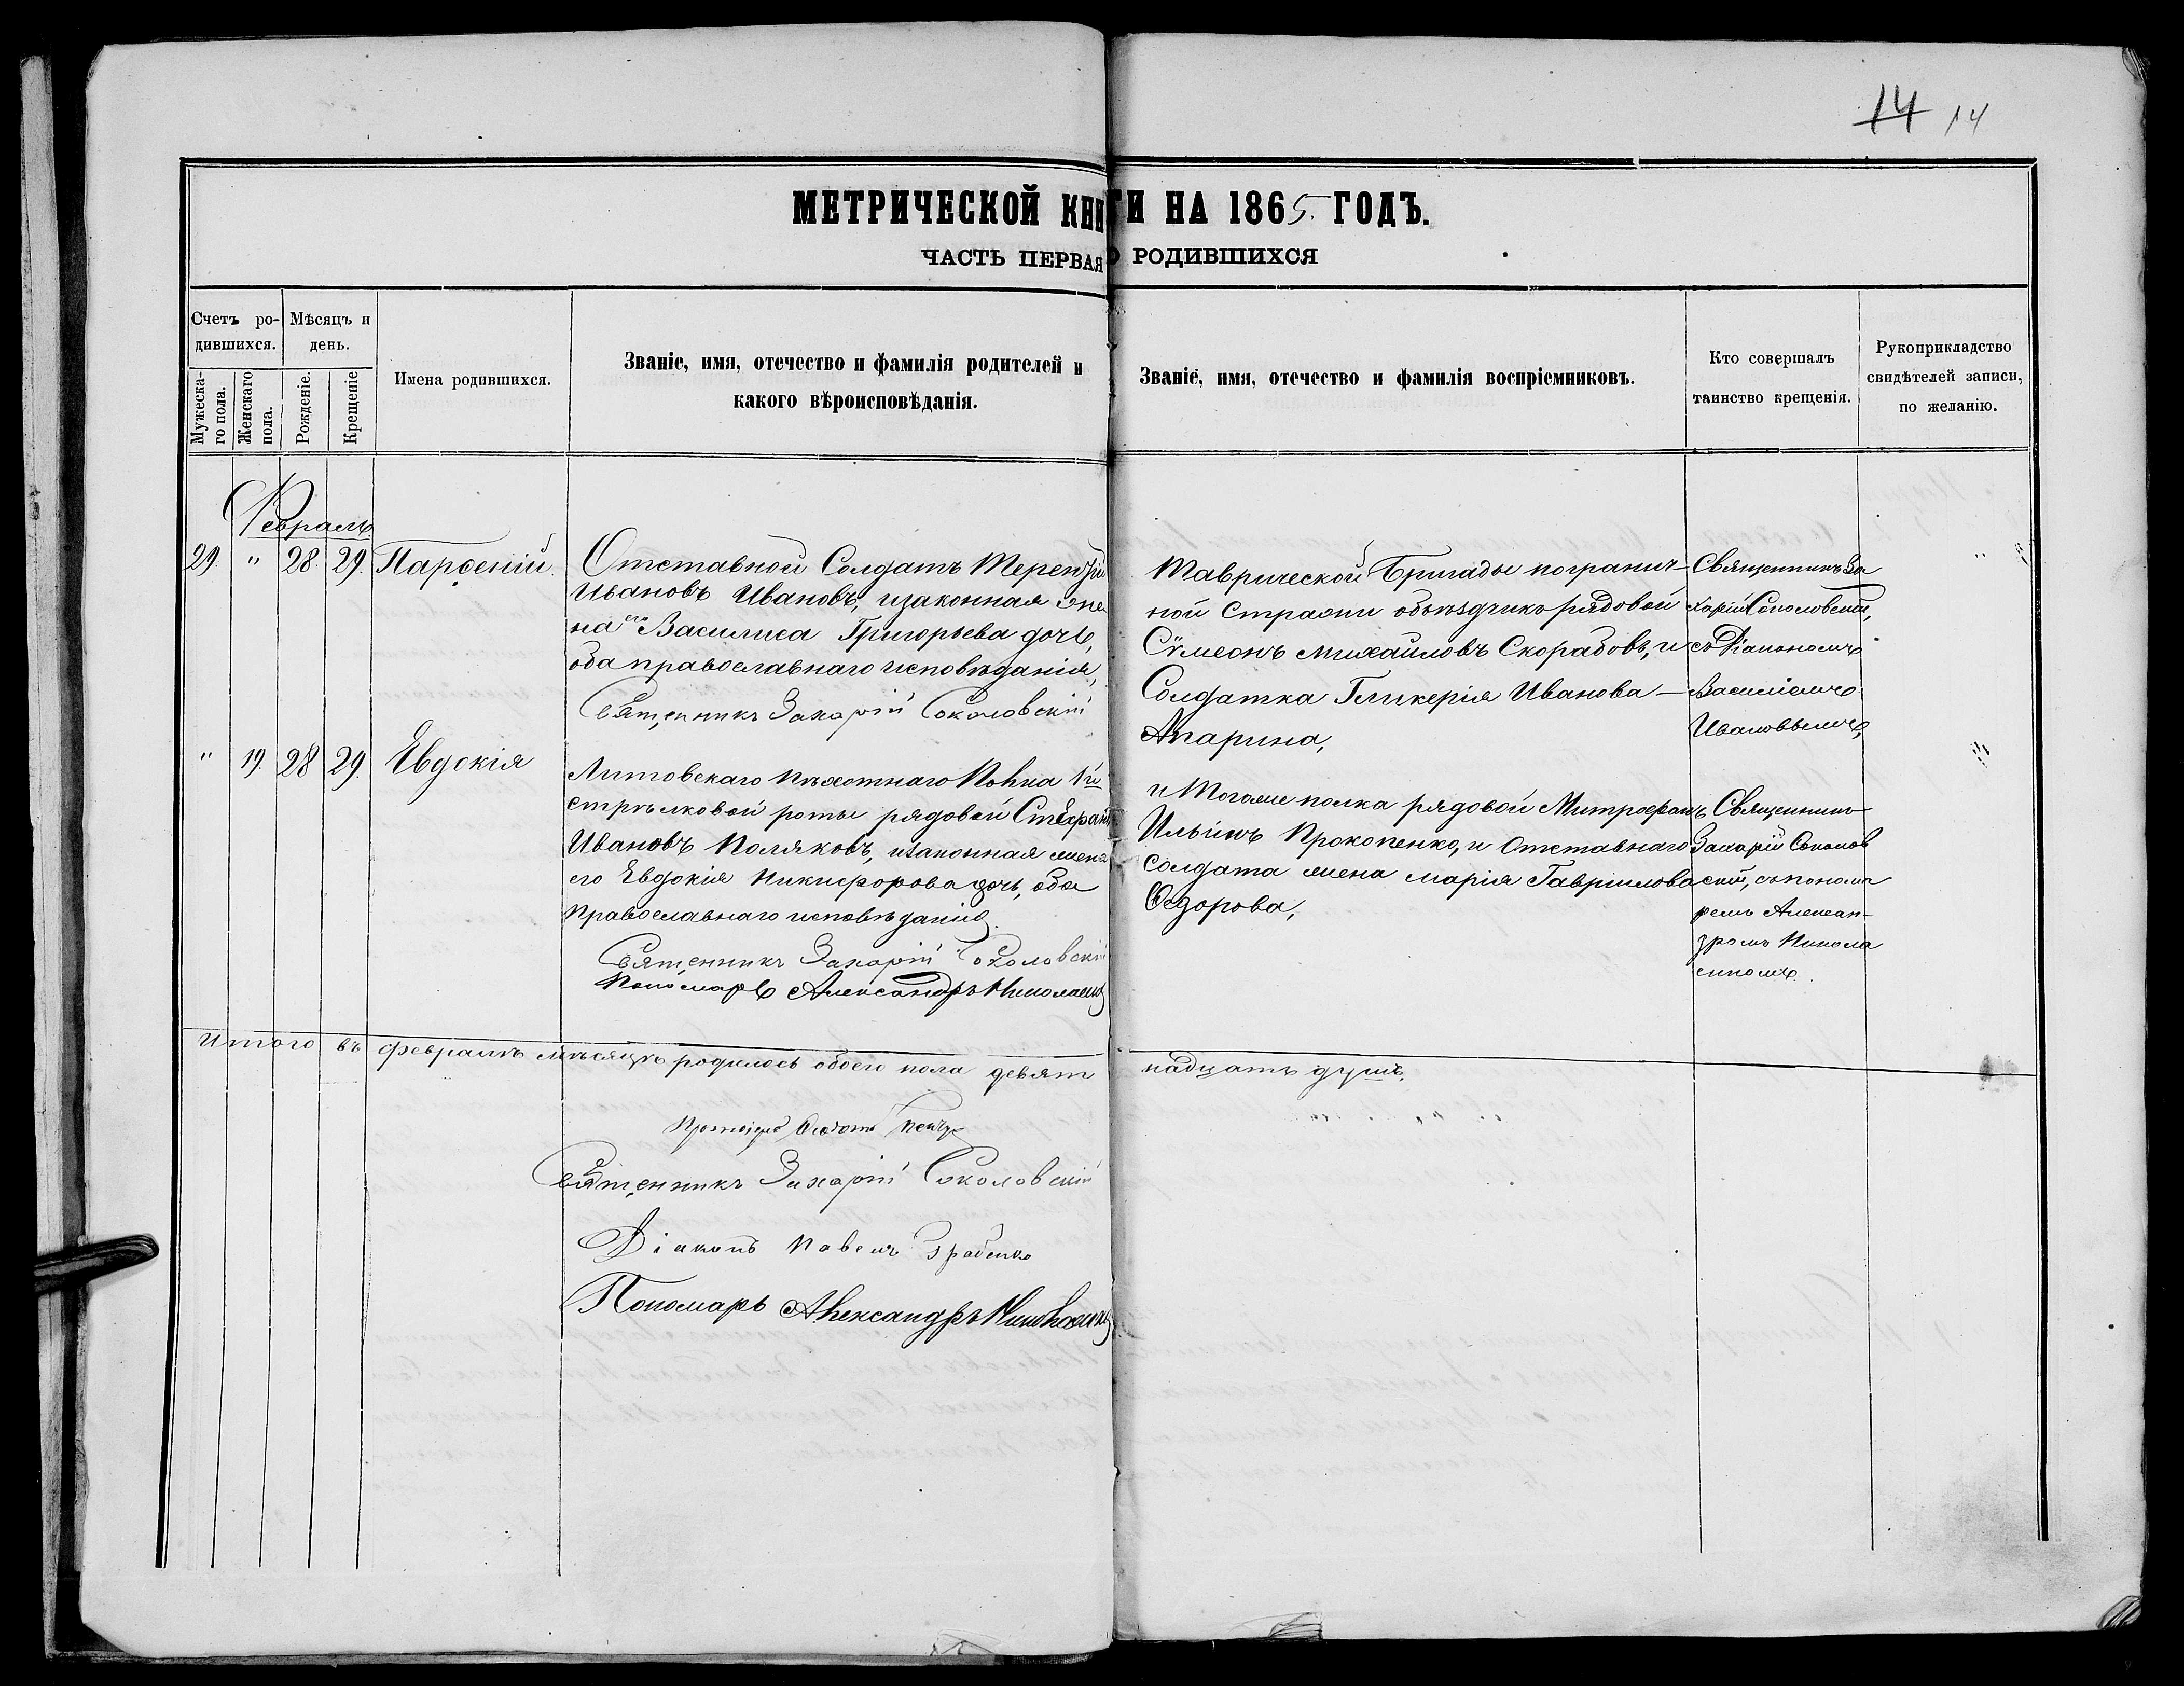 14 14
МЕТРИЧЕСКОЙ КНИГИ НА 1865 ГОДЪ.
ЧАСТЬ ПЕРВАЯ О РОДИВШИХСЯ
Счетъ ро-
дившихся.
Мужеска-
го пола.
Женскаго
пола.
Мѣсяцъ и
день.
Рожденіе.
Крещеніе
Имена родившихся.
Званіе, имя, отечество и фамилія родителей и
какого вѣроисповѣданія.
Званіе, имя, отечество и фамилія воспріемниковъ.
Кто совершалъ
таинство крещенія.
Рукоприкладство
свидѣтелей записи,
по желанію.
Февраль
29. " 28. 29. Парѳеній.
Отставной Солдатъ Терентій
Ивановъ Ивановъ, изаконная же
на его Василиса Григорьева дочь,
оба православнаго исповѣданія,
Священникъ Захарій Соколовскій
Таврической Бригады погранич-
ной Стражи объѣздчикъ рядовой
Сѵмеонъ Михаиловъ Скорабовъ, и
Солдатка Гликерія Иванова
Апарина,
Священникъ За
харій Соколовскій,
съ Діакономъ
Василіемъ
Ивановымъ,
" 19. 28 29. Евдокія
Литовскаго пѣхотнаго Полка 1й
стрѣлковой роты рядовой Стефанъ
Ивановъ Поляковъ, изаконная жена
его Евдокія Никифорова дочь, оба
Православнаго исповѣданія.
Священникъ Захарій Соколовскій
Пономарь Александръ Николаенко
и Тогоже полка рядовой Митрофанъ
Ильинъ Прокопенко, и Отставнаго
солдата жена Марія Гавріилова
Ѳедорова,
Священникъ
Захарій Соколов
скій, съ понома
ремъ Алексан-
дромъ Никола
енкомъ.
Итого въ Февралѣ мѣсяцѣ родилось обоего пола девят надцать душъ.
Священникъ Захарій Соколовскій
Діаконъ Павелъ Грабенко
Пономарь Александръ Николаенко